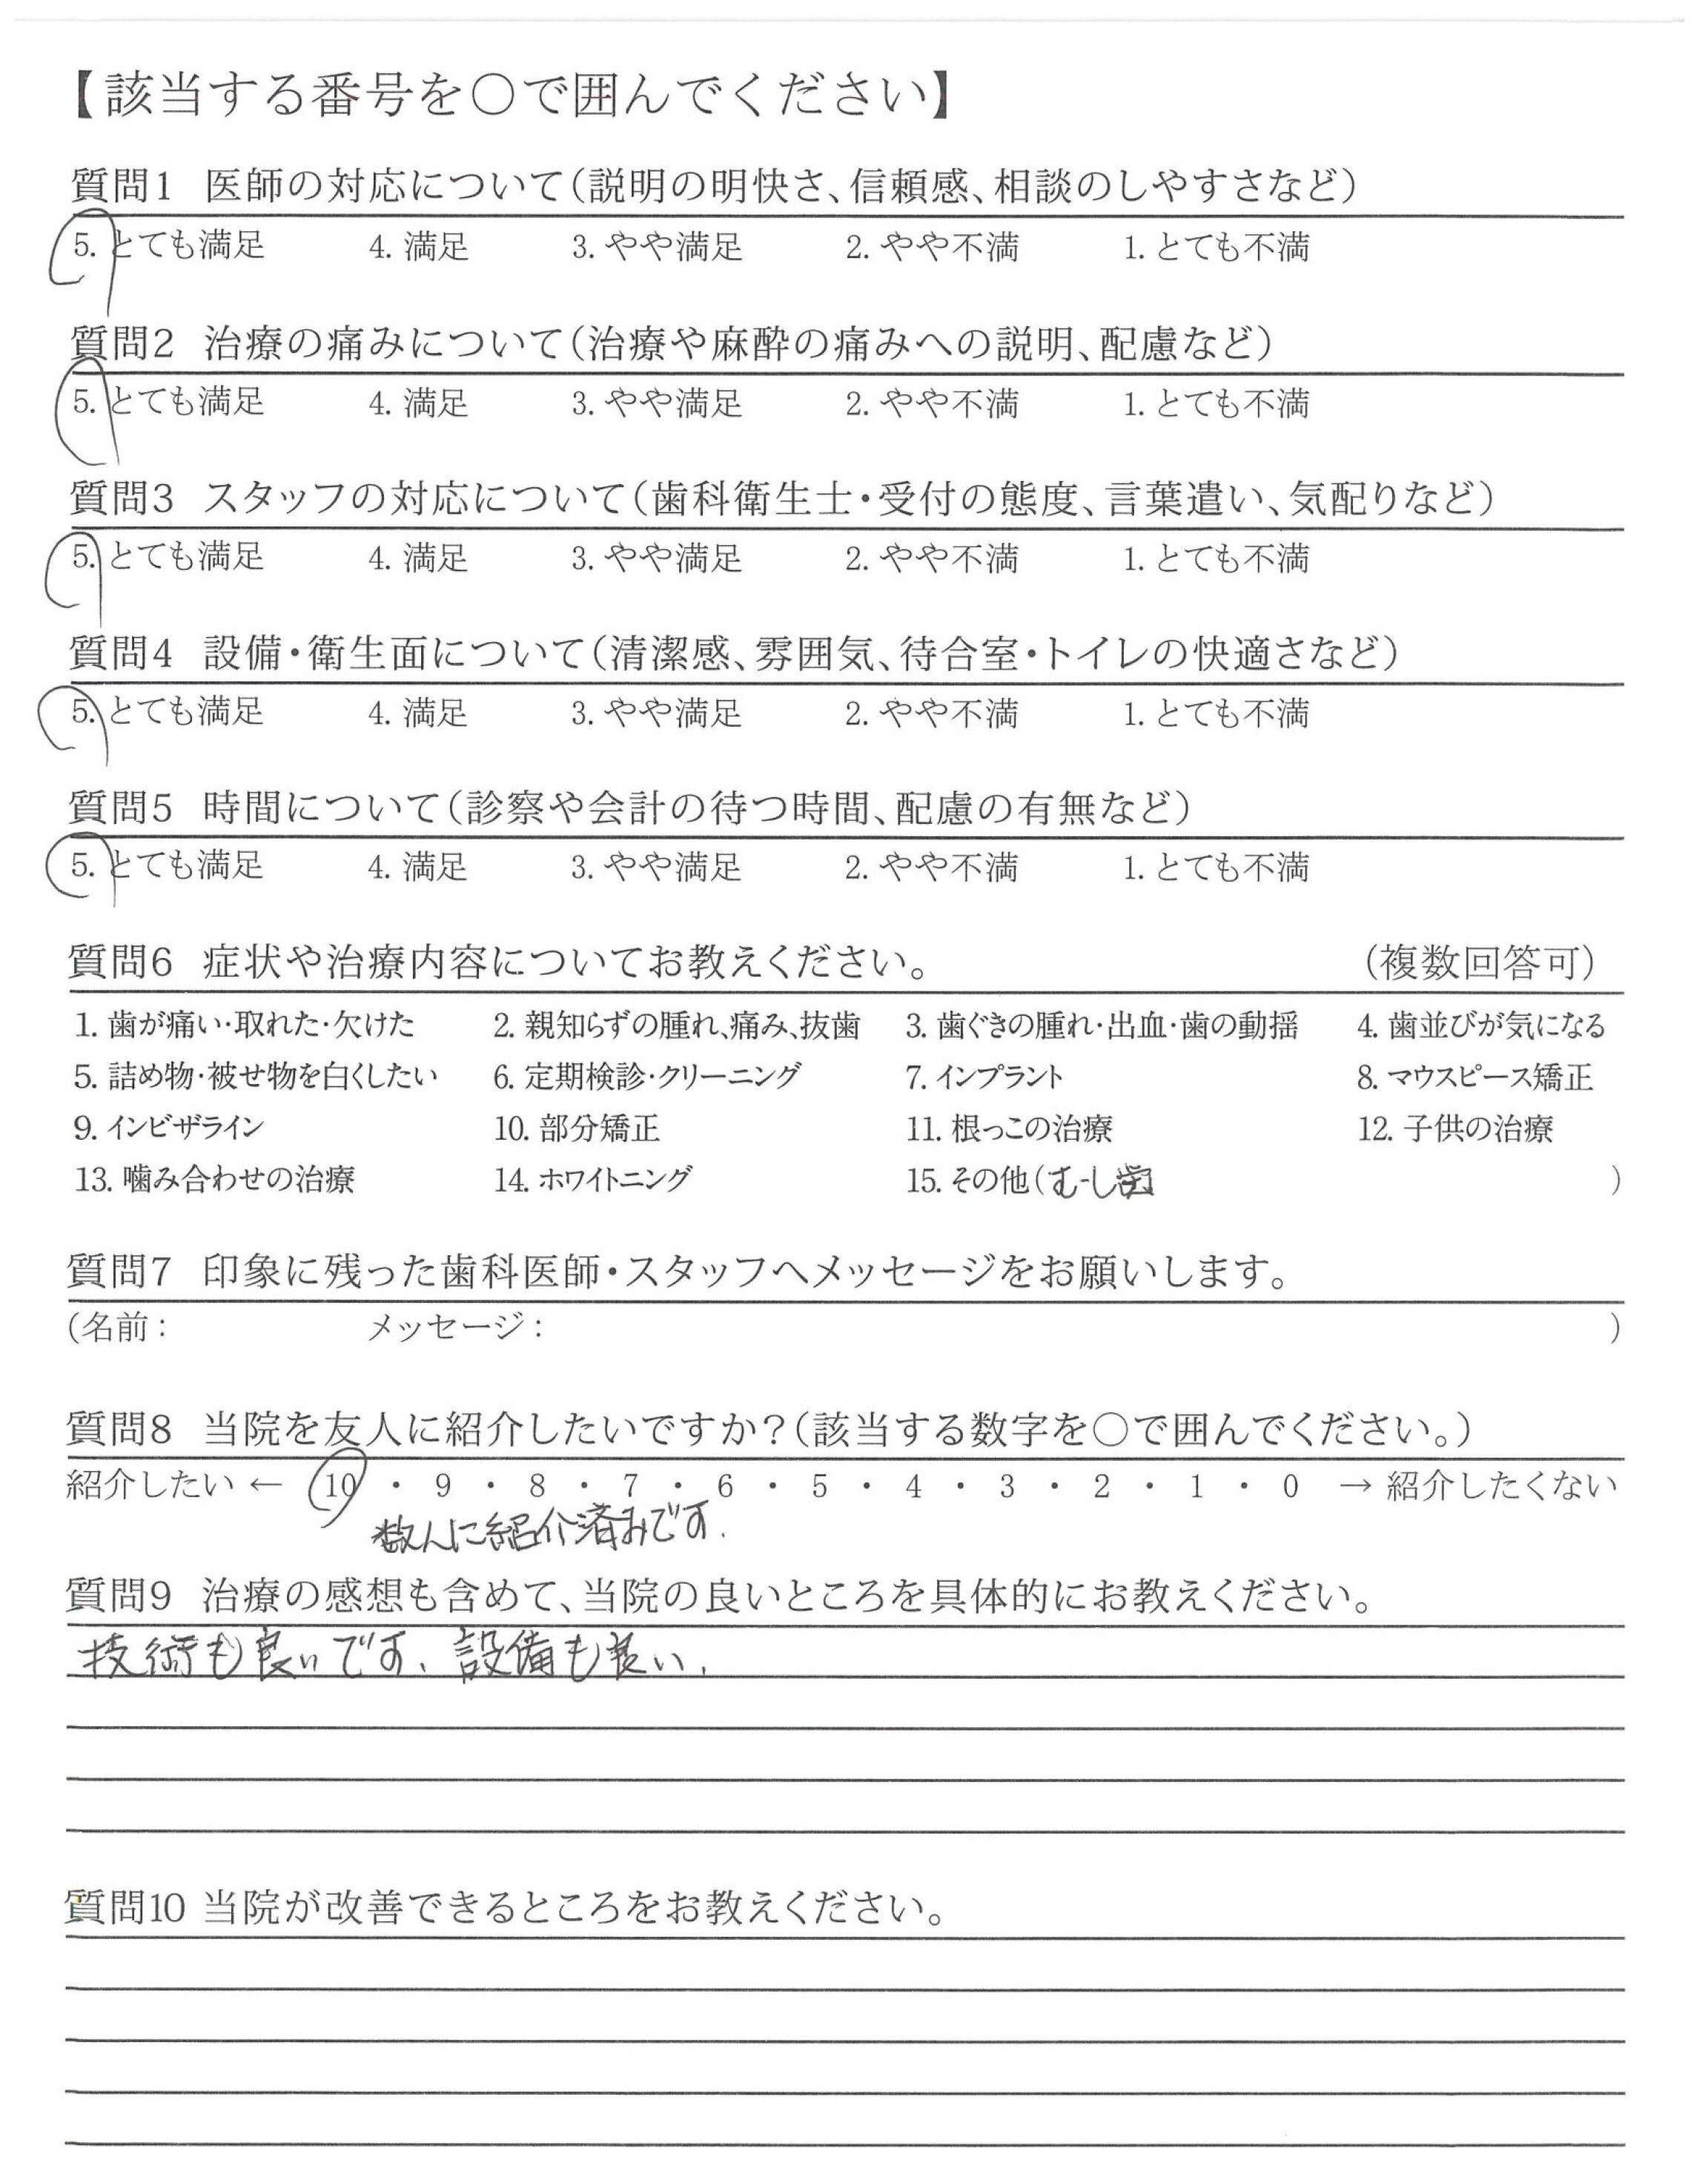 【該当する番号を○で囲んでください】
質問1 医師の対応について（説明の明快さ、信頼感、相談のしやすさなど）
5. とても満足 4. 満足 3. やや満足 2. やや不満 1. とても不満
質問2 治療の痛みについて（治療や麻酔の痛みへの説明、配慮など）
5. とても満足 4. 満足 3. やや満足 2. やや不満 1. とても不満
質問3 スタッフの対応について（歯科衛生士・受付の態度、言葉遣い、気配りなど）
5. とても満足 4. 満足 3. やや満足 2. やや不満 1. とても不満
質問4 設備・衛生面について（清潔感、雰囲気、待合室・トイレの快適さなど）
5. とても満足 4. 満足 3. やや満足 2. やや不満 1. とても不満
質問5 時間について（診察や会計の待つ時間、配慮の有無など）
5. とても満足 4. 満足 3. やや満足 2. やや不満 1. とても不満
質問6 症状や治療内容についてお教えください。 （複数回答可）
1. 歯が痛い・取れた・欠けた 2. 親知らずの腫れ、痛み、抜歯 3. 歯ぐきの腫れ・出血・歯の動揺 4. 歯並びが気になる
5. 詰め物・被せ物を白くしたい 6. 定期検診・クリーニング 7. インプラント 8. マウスピース矯正
9. インビザライン 10. 部分矯正 11. 根っこの治療 12. 子供の治療
13. 噛み合わせの治療 14. ホワイトニング 15. その他（むし歯 ）
質問7 印象に残った歯科医師・スタッフへメッセージをお願いします。
（名前： メッセージ： ）
質問8 当院を友人に紹介したいですか？（該当する数字を○で囲んでください。）
紹介したい ← 10 ・ 9 ・ 8 ・ 7 ・ 6 ・ 5 ・ 4 ・ 3 ・ 2 ・ 1 ・ 0 → 紹介したくない
数人に紹介済みです.
質問9 治療の感想も含めて、当院の良いところを具体的にお教えください。
技術も良いです、設備も良い.
質問10 当院が改善できるところをお教えください。